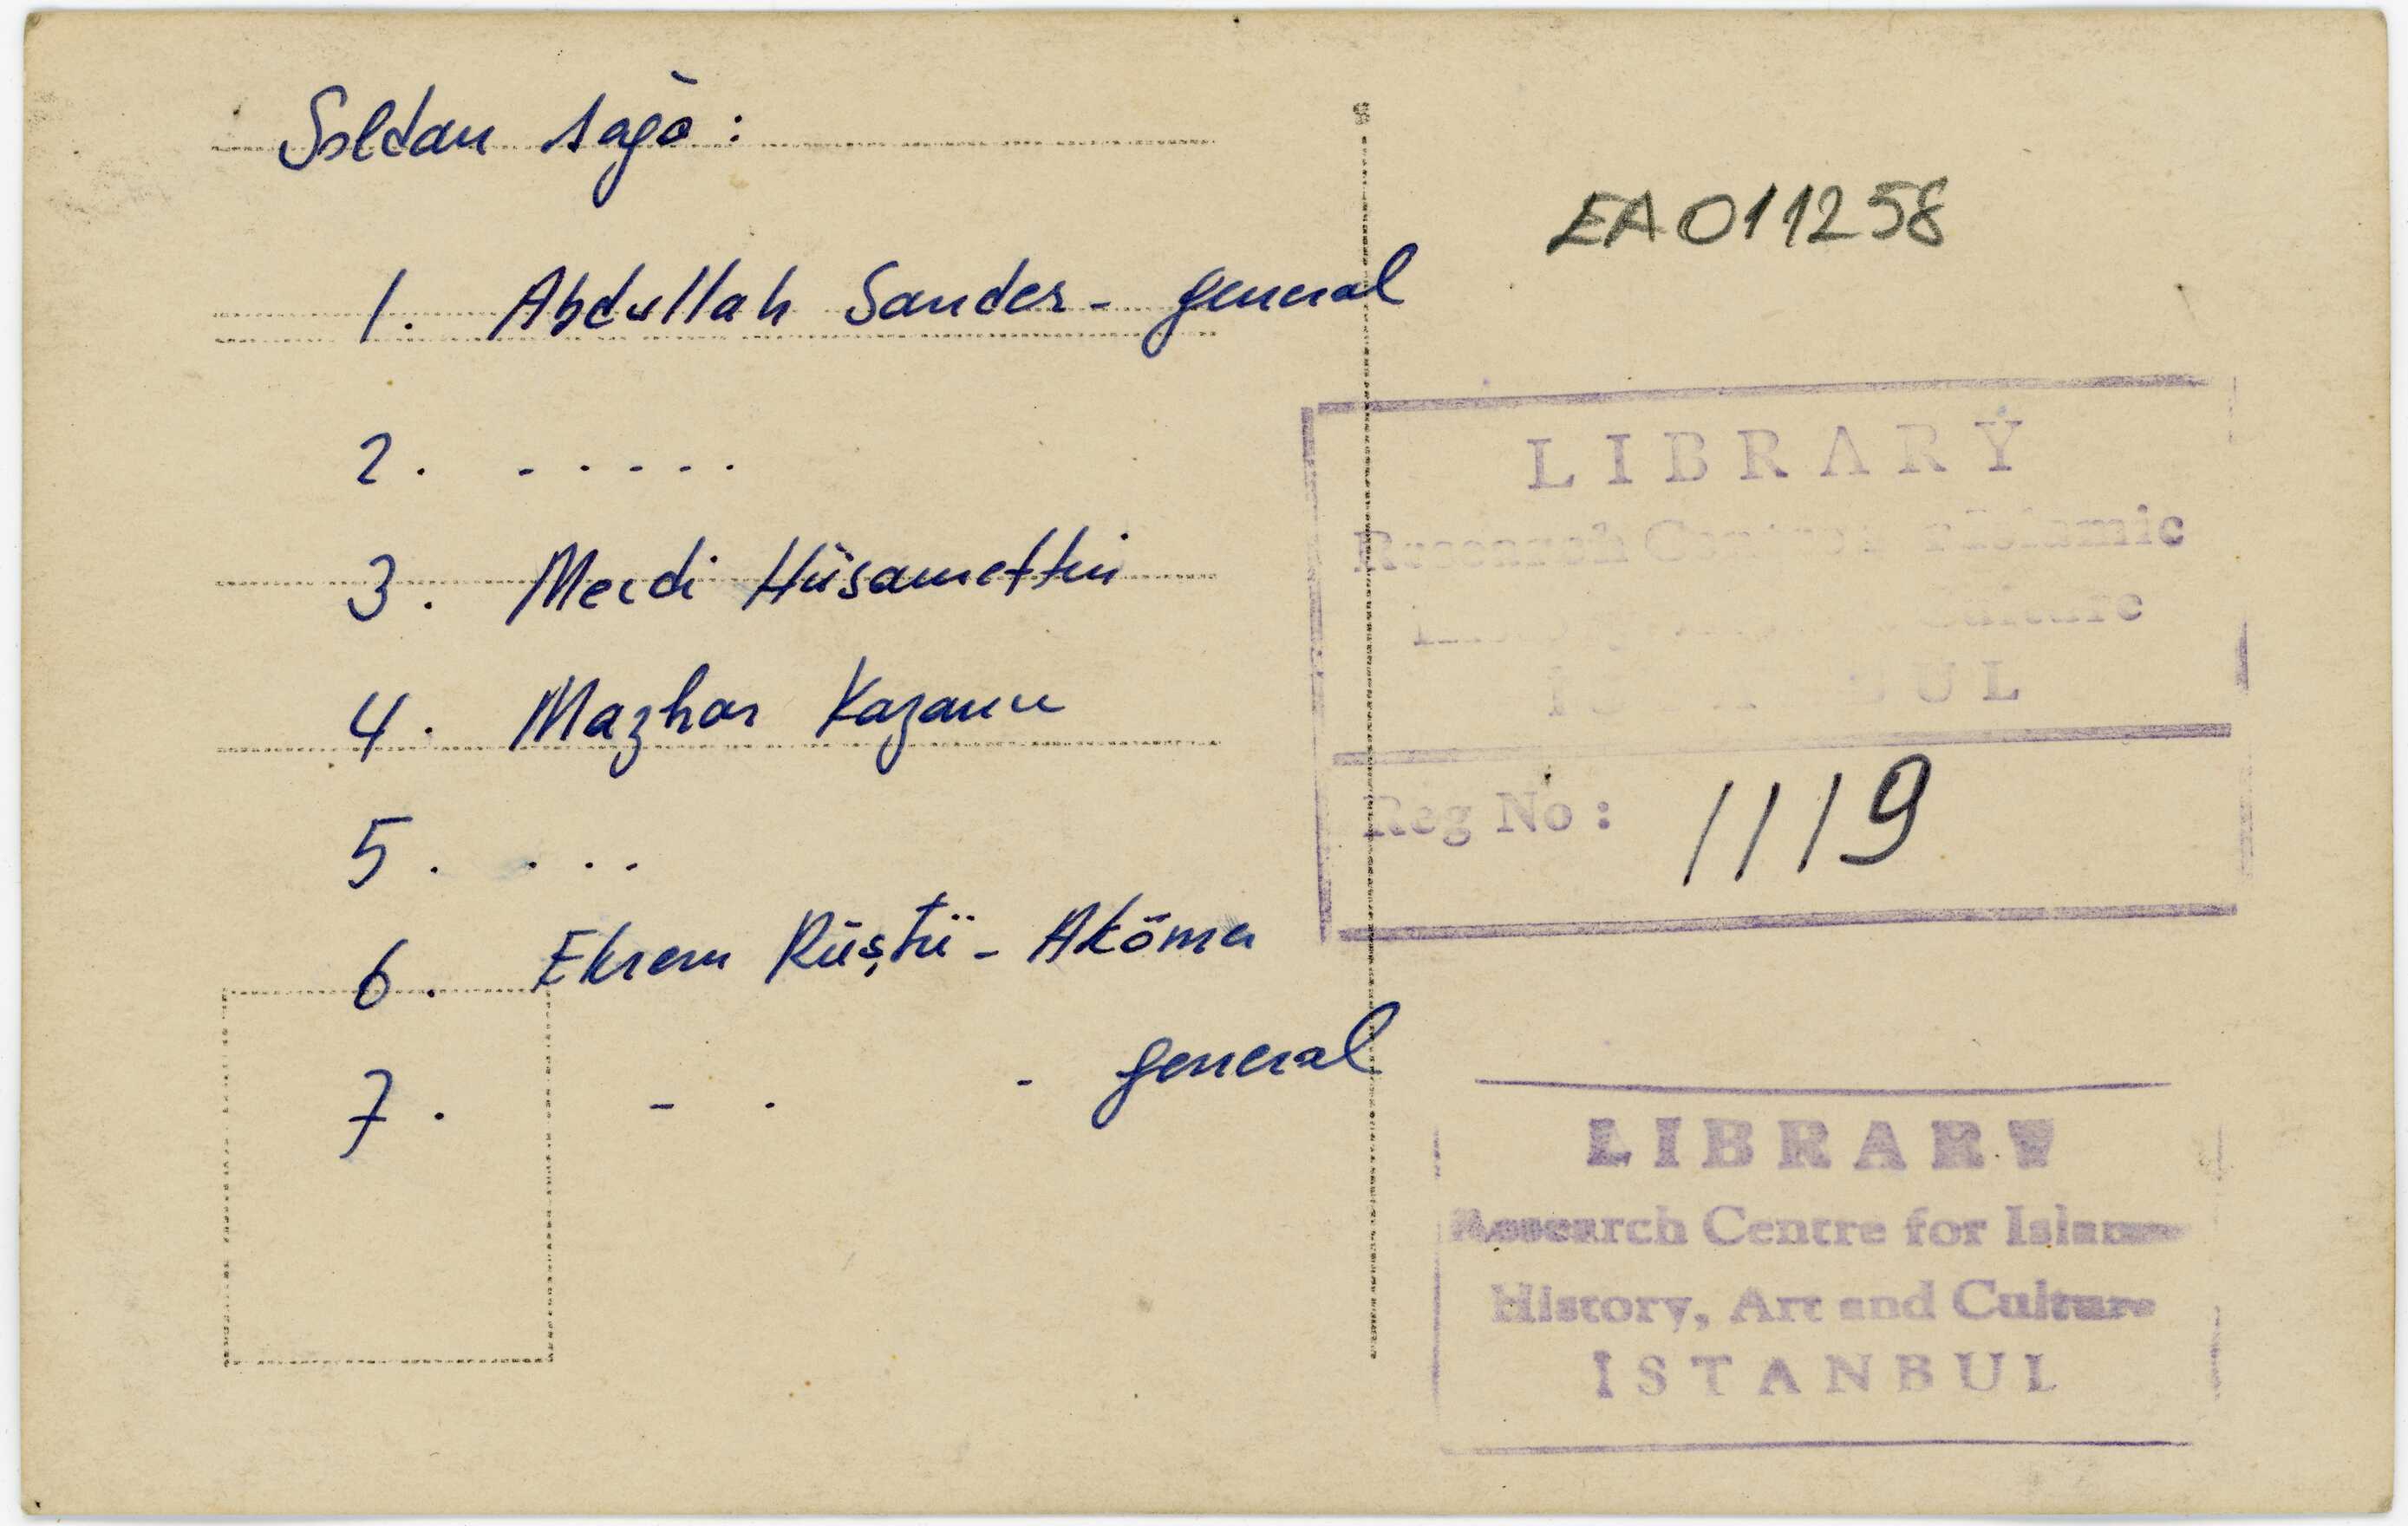 Soldan sağa :
1. Abdullah Sander - general
2. - . - - .
3. Mecdi Hüsamettin
4. Mazhar
5. . . .
6. Ekrem Rüştü - Akömer
7. - . - general
EA011258
LIBRARY
Research Islamic
Culture
Reg No : 1119
LIBRARY
Research Centre for
History, Art and Culture
ISTANBUL